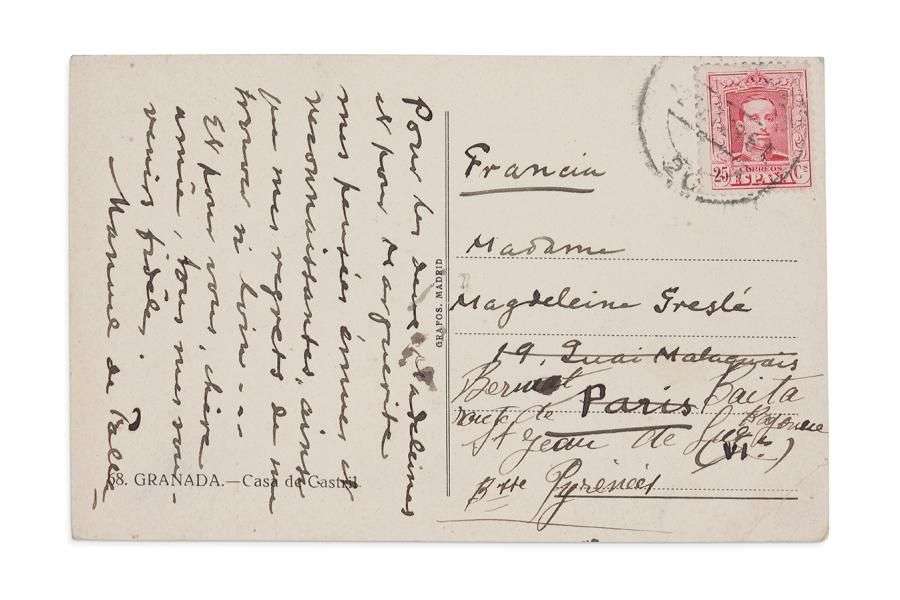 Pour les deux Madeleines
et pour Marguerite
mes pensées émues et
reconnaissantes, ainsi
que mes regrets de me
trouver si loin...
Et pour vous, chère
amie, tous mes sou-
venirs fidèles
Manuel de Falla
68. GRANADA.—Casa de Castril
GRAFOS. MADRID
25 CORREOS Cs
ESPAÑA
Francia
Madame
Magdeleine Greslé
19, Quai Malaquais
Paris
(VIe)
Baita
route de Bayonne
St Jean de Luz
Bsses Pyrénées